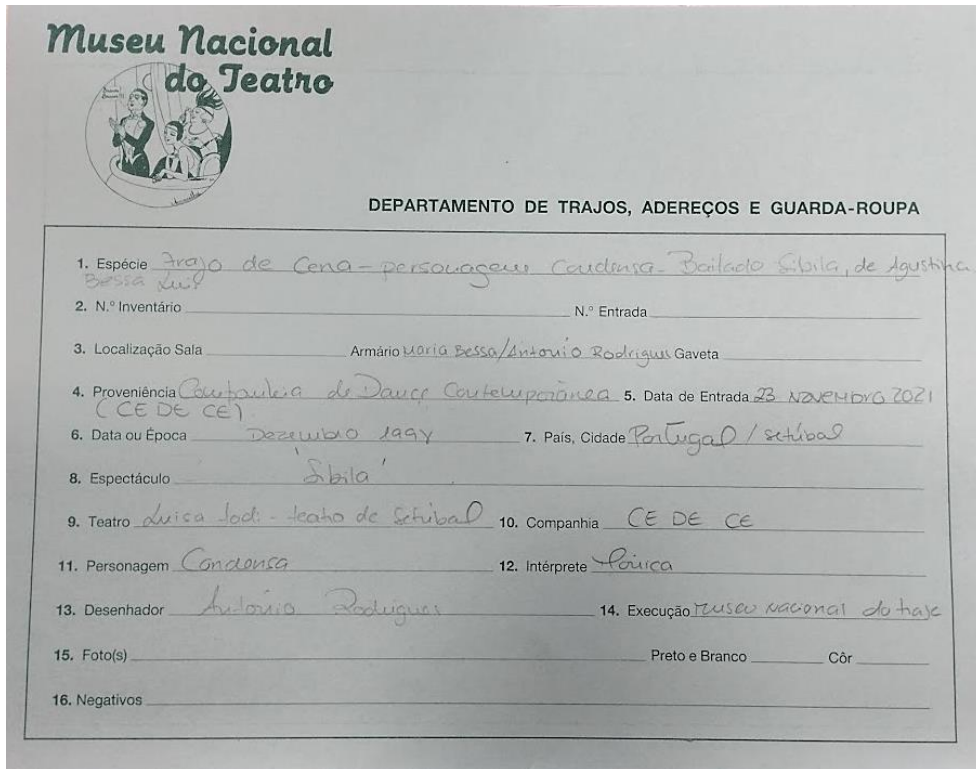 Museu Nacional
do Teatro
DEPARTAMENTO DE TRAJOS, ADEREÇOS E GUARDA-ROUPA
1. Espécie Trajo de Cena - personagem Condensa - Bailado Sibila, de Agustina
Bessa Luís
2. N.º Inventário N.º Entrada
3. Localização Sala Armário Maria Bessa/António Rodrigues Gaveta
4. Proveniência Companhia de Dança Contemporânea 5. Data de Entrada 23 NOVEMBRO 2021
(CE DE CE)
6. Data ou Época Dezembro 7. País, Cidade Portugal / setúbal
8. Espectáculo 'Sibila'
9. Teatro Luisa Todi - teatro de Setúbal 10. Companhia CE DE CE
11. Personagem Condensa 12. Intérprete Mónica
13. Desenhador António Rodrigues 14. Execução Museu Nacional do traje
15. Foto(s) Preto e Branco Côr
16. Negativos